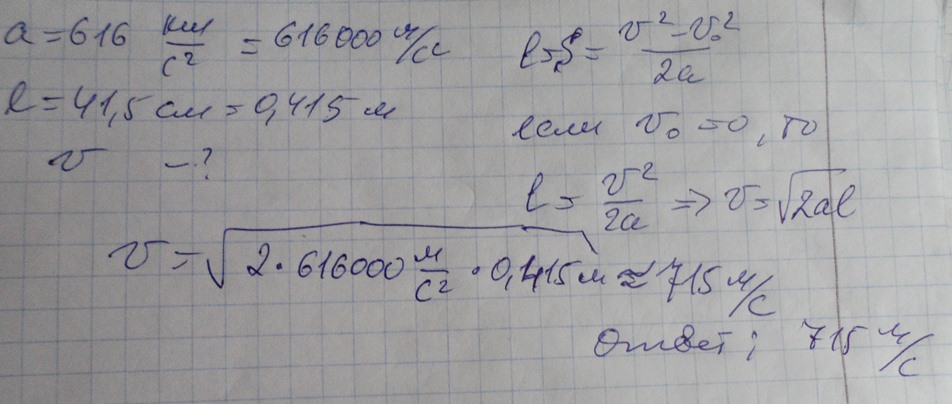 a = 616 км/с² = 616000 м/с²
l = 41,5 см = 0,415 м
v - ?
l = S = (v² - v₀²)/2a
если v₀ = 0, то
l = v²/2a => v = √2al
v = √2 · 616000 м/с² · 0,415 м ≈ 715 м/с
Ответ: 715 м/с